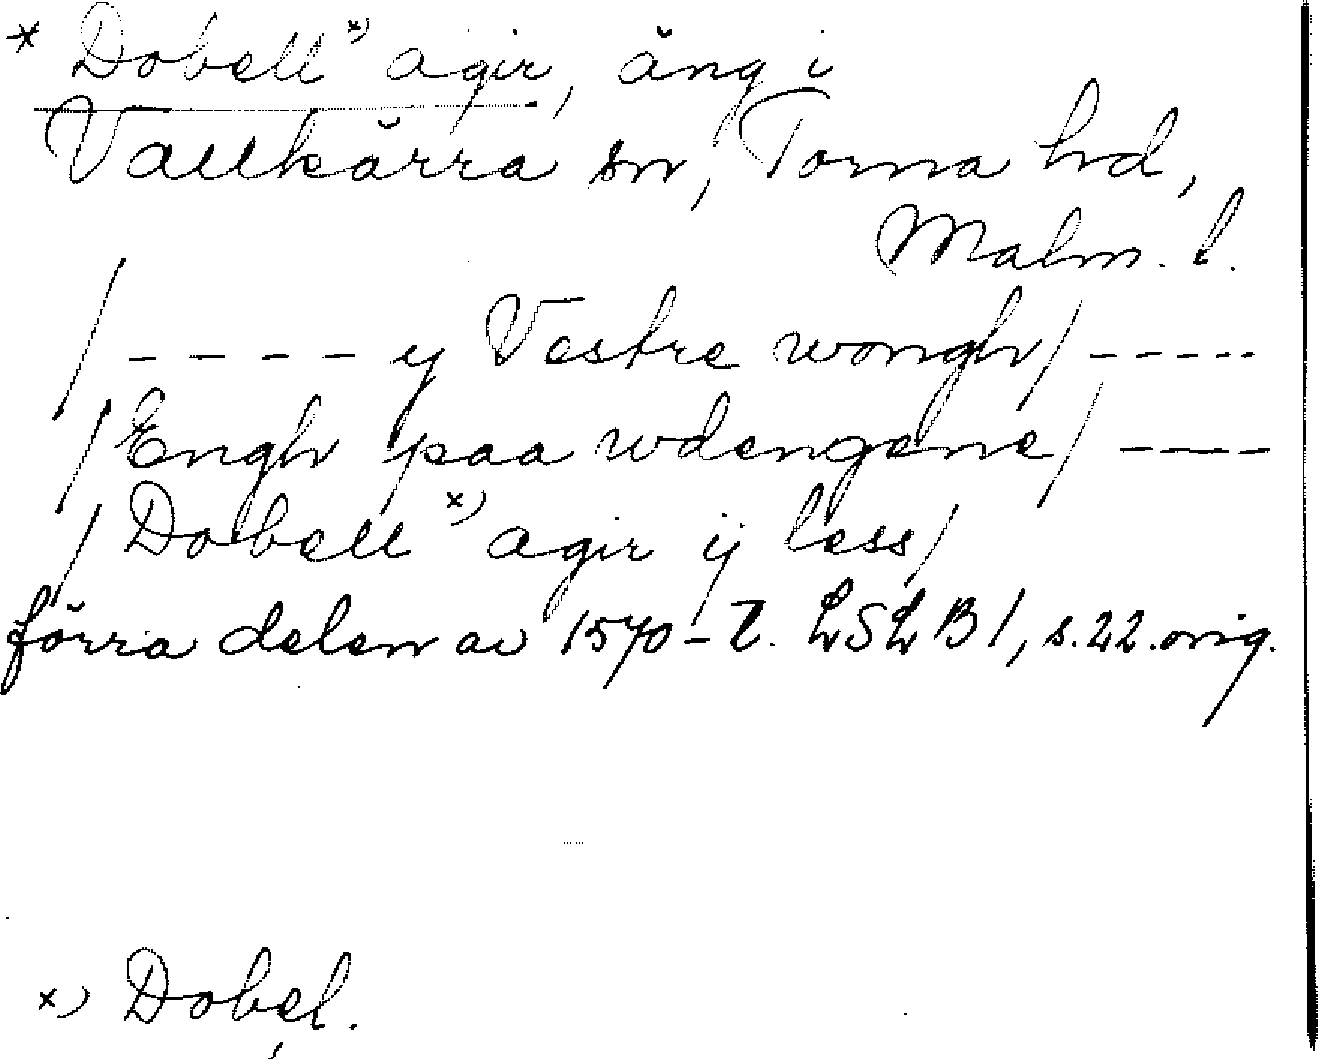 * Dobell x) agir, äng i
Vallkärra sn, Torna hd,
Malm. l.
/ - - - - y Vestre wongh / - - - - -
/ Engh paa wdengene / - - - -
/ Dobell x) agir ij less /
förra delen av 1570-t. LSLB1, s. 22. orig.
x) Dobęl.